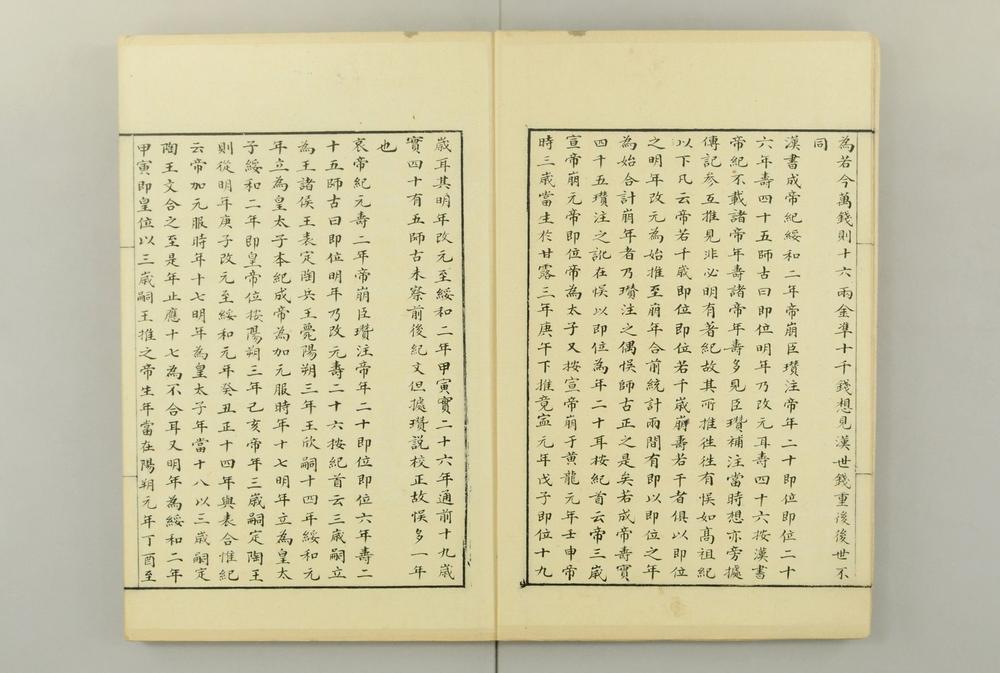 為若今萬錢則十六兩金準十千錢想見漢世錢重後後世不
同
漢書成帝紀綏和二年帝崩臣瓚注帝年二十即位即位二十
六年壽四十五師古曰即位明年乃改元耳壽四十六按漢書
帝紀不載諸帝年壽諸帝年壽多見臣瓚補注當時想亦旁據
傳記參互推見非必明有著紀故其所推徃徃有悮如高祖紀
以下凡云帝若干歲即位即位若干歲崩壽若干者俱以即位
之明年改元為始推至崩年合前統計兩間有即以即位之年
為始合計崩年者乃瓚注之偶悮師古正之是矣若成帝壽實
四十五瓚注之訛在悮以即位為年二十耳按紀首云帝三歲
宣帝崩元帝即位帝為太子又按宣帝崩于黃龍元年壬申帝
時三歲當生於甘露三年庚午下推竟寧元年戊子即位十九
歲耳其明年改元至綏和二年甲寅實二十六年通前十九歲
實四十有五師古未察前後紀文但據瓚說校正故悮多一年
也
哀帝紀元壽二年帝崩臣瓚注帝年二十即位即位六年壽二
十五師古曰即位明年乃改元壽二十六按紀首云三歲嗣立
為王諸侯王表定陶共王薨陽朔三年王欣嗣十四年綏和元
年立為皇太子本紀成帝為加元服時年十七明年立為皇太
子綏和二年即皇帝位按陽朔三年己亥帝年三歲嗣定陶王
則從明年庚子改元至綏和元年癸丑正十四年與表合惟紀
云帝加元服時年十七明年為皇太子年當十八以三歲嗣定
陶王文合之至是年止應十七為不合耳又明年為綏和二年
甲寅即皇位以三歲嗣王推之帝生年當在陽朔元年丁酉至